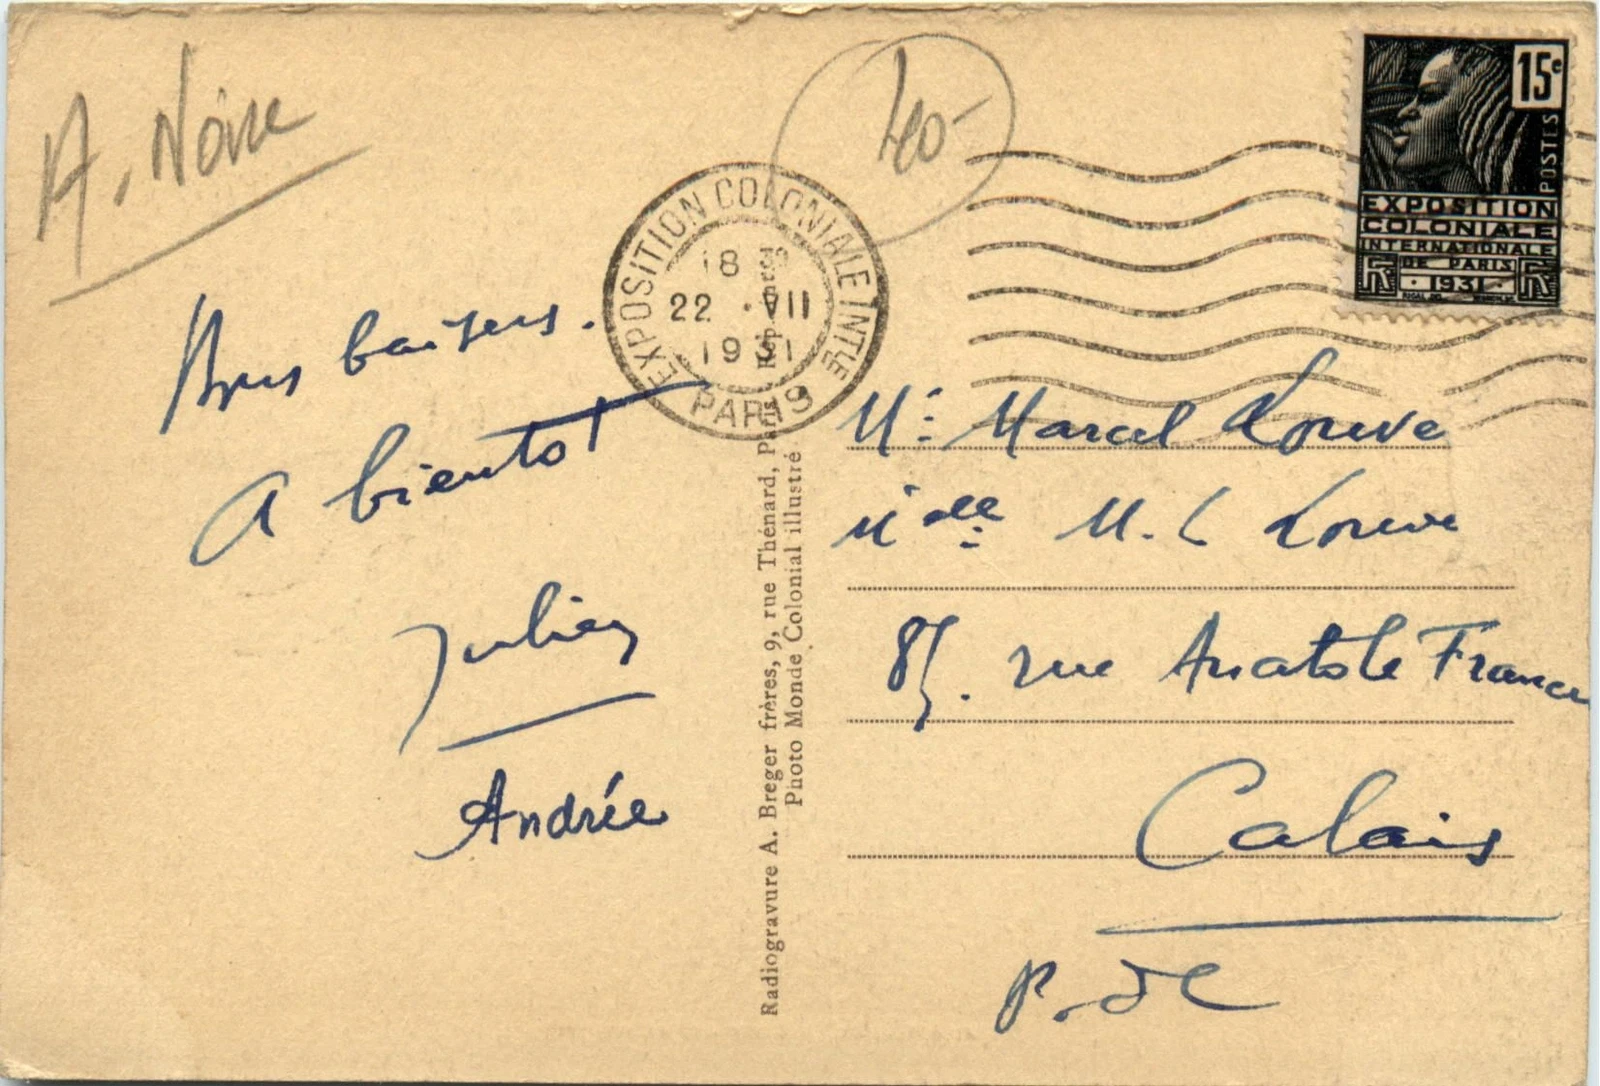 A. Noire
400-
EXPOSITION COLONIALE INTLE
PARIS
18
22 · VII
1931
15c
POSTES
EXPOSITION
COLONIALE
INTERNATIONALE
DE PARIS
RF · 1931 · RF
Bons baisers.
A bientot
Julien
Andrée
Radiogravure A. Breger frères, 9, rue Thénard, Paris
Photo Monde Colonial illustré
Mr Marcel Louve
Melle M. L Louve
85. rue Anatole France
Calais
P. de C